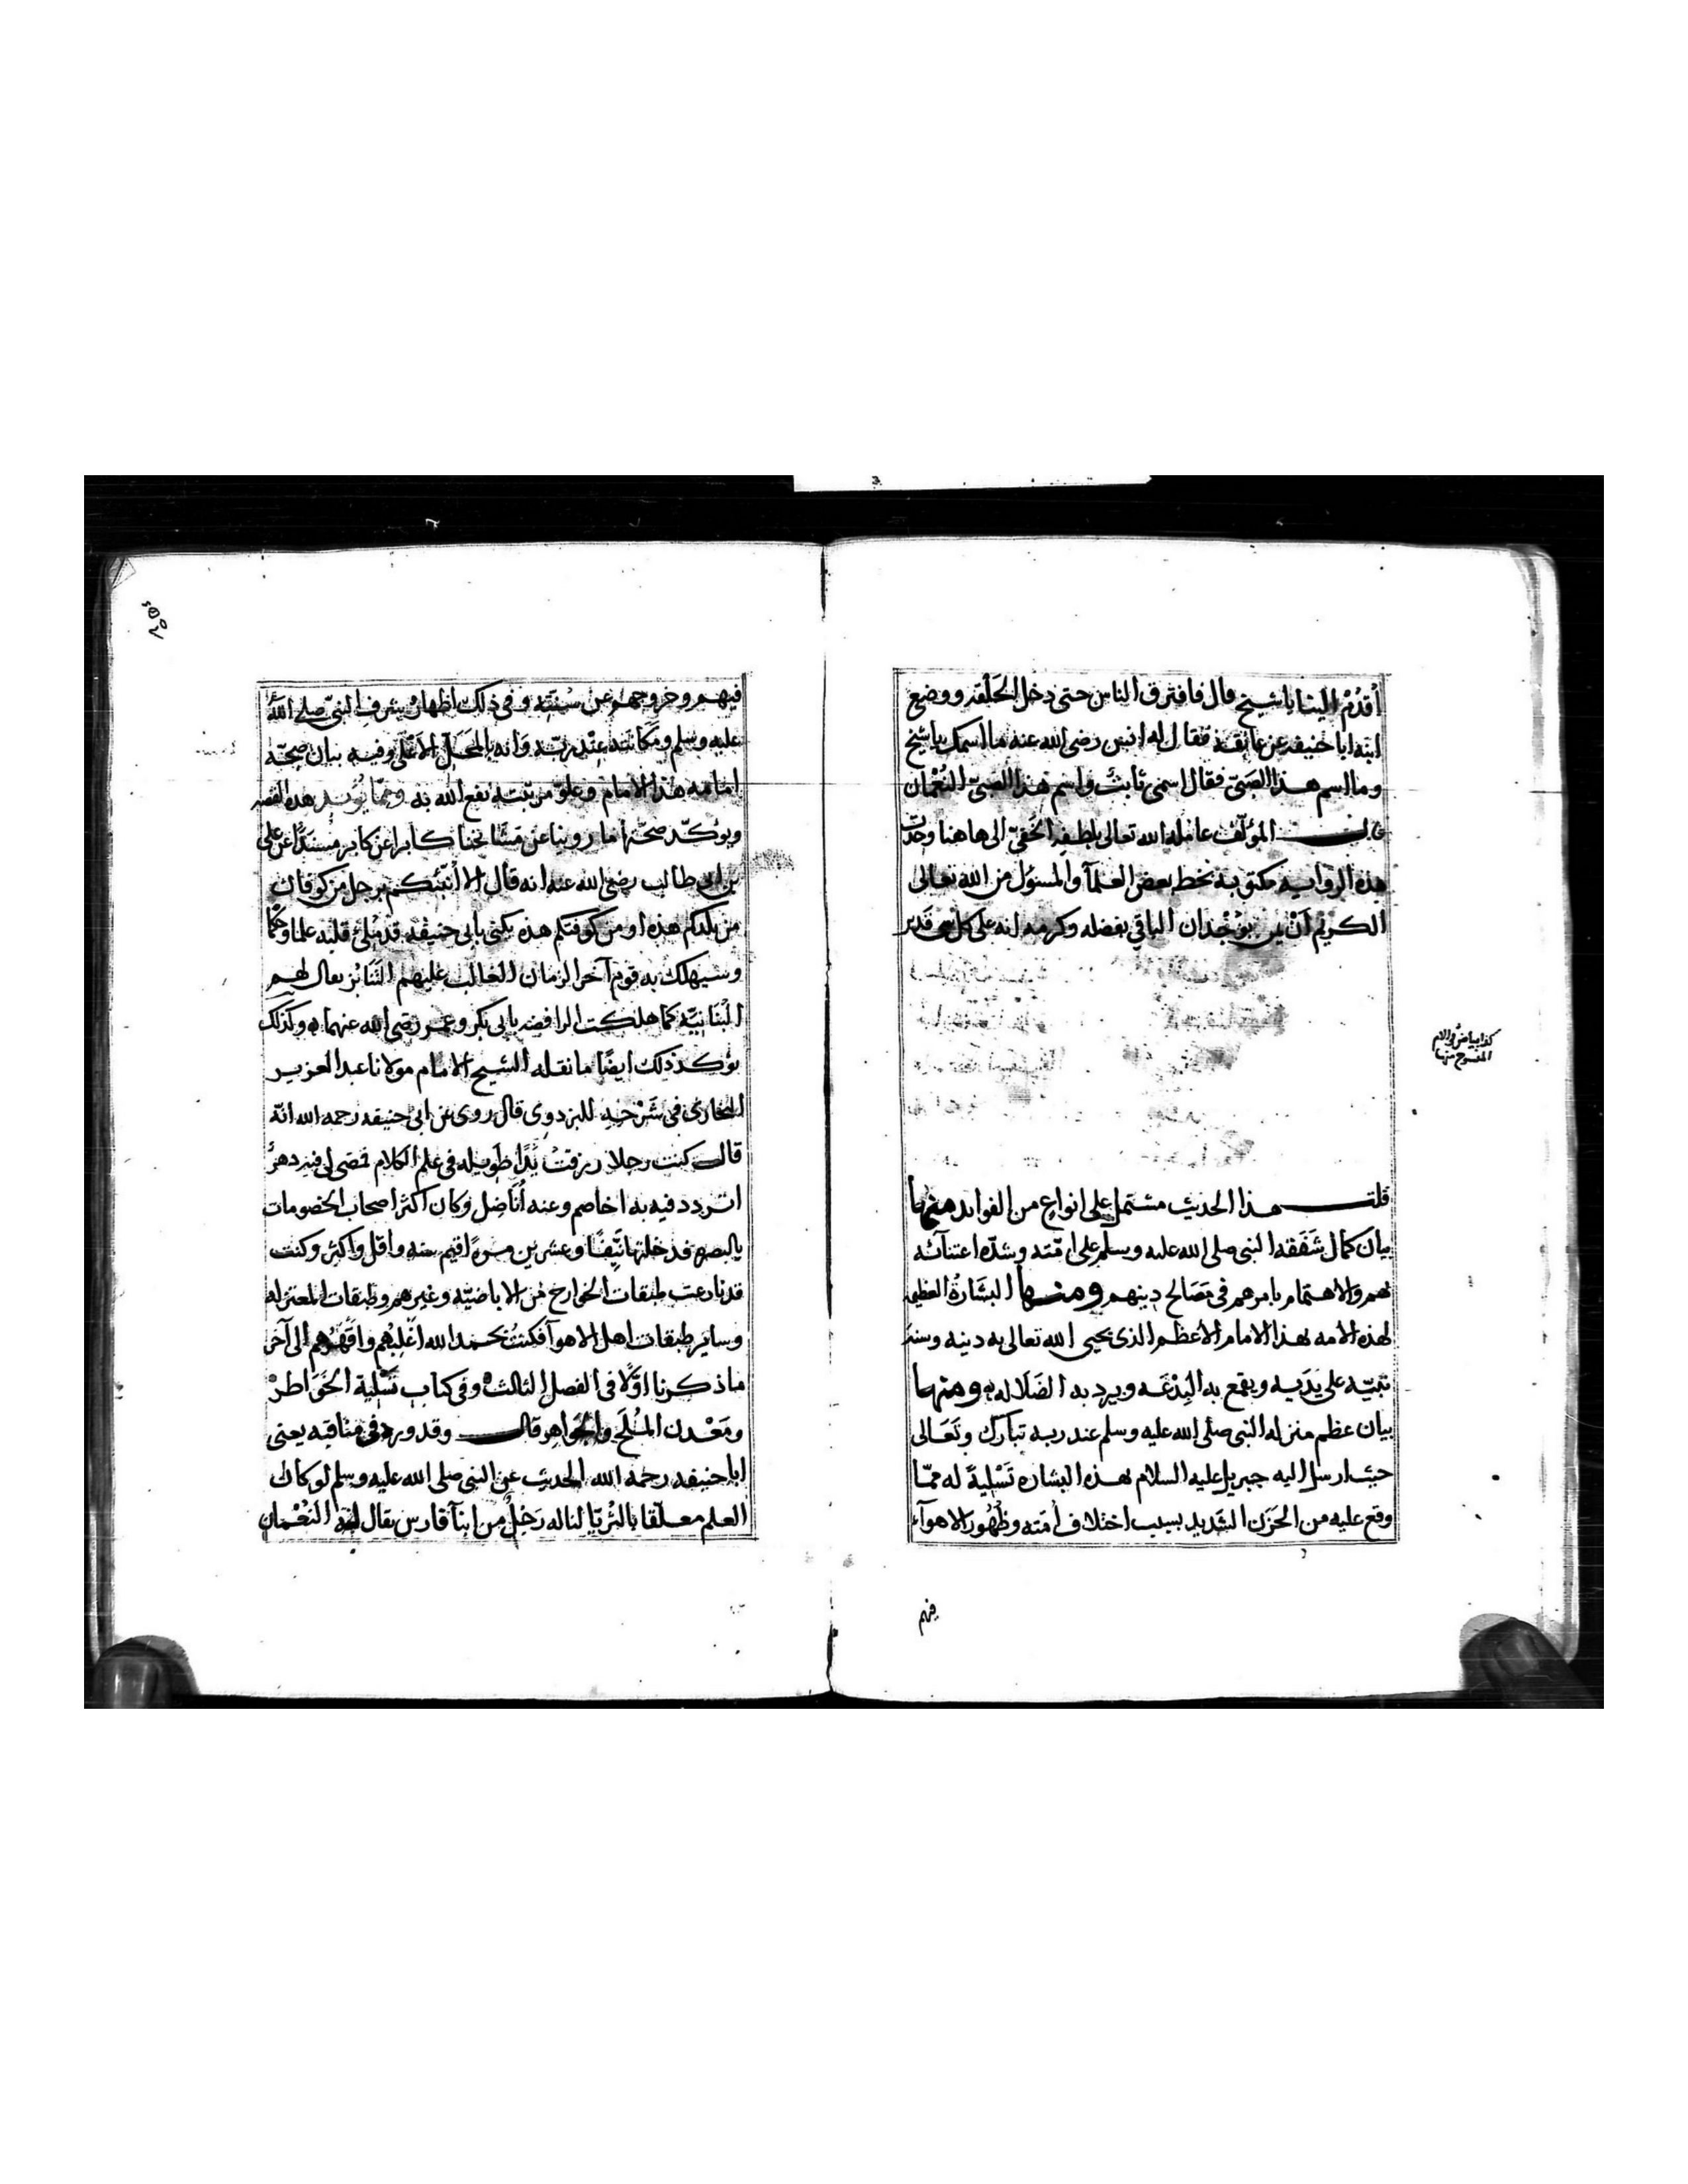 أقدم الينا يا شيخ قال فافترق الناس حتى دخل الحلقه ووضع
ابنه ابا حنيفه عن عاتقه فقال له انس رضى الله عنه ما اسمك يا شيخ
وما اسم هذا الصبىّ فقال اسمى ثابت واسم هذا الصبىّ النعمان
قال المؤلف عامله الله تعالى بلطفه الخفىّ الى هاهنا وجدت
هذه الروايه مكتوبة بخط بعض العلمآ والمسئول من الله تعالى
الكريم أن يمن بوُجْدان الباقي بفضله وكرمه انه على كل شى قدير
كذا بياض فى الام
المنسوخ منها
قلت هذا الحديث مشتمل على انواع من الفوايد منها
بيان كمال شفقه النبى صلى الله عليه وسلم على امّته وشدّه اعتنآئه
بهم والاهتمام بامرهم فى مَصَالح دينهم ومنها البشارةُ العظيمه
لهذه الامه بهذا الامام الاعظم الذى يحيى الله تعالى به دينه وسنة
نبيّه على يَدَيه ويقمع به البِدْعَه ويرد به الضَلَاله ومنها
بيان عظم منزله النبى صلى الله عليه وسلم عند ربه تبارك وتَعَالى
حيث ارسل اليه جبريل عليه السلام بهذه البشاره تَسْلِيةً له ممّا
وقع عليه من الحزن الشديد بسبب اختلاف أمّته وظُهُور الاهوآء
فيهم
فيهم وخروجهم عن سُنّته وفى ذلك اظهارُ شرف النبىّ صلى اللهُ
عليه وسلم ومكانته عند ربّه وَانه بالمحَل الأعْلى وفيه بيان صحّة
امامه هذا الامام وعلو مرتبته نفع الله به وممّا يُؤيد هذه القصه
ويؤكّد صحّتها ما روينا عن مشَايخنا كابرا عن كابر مسندًا عن على
بن ابى طالب رضى الله عنه انه قال الا أنبّئكم برجل من كوفان
من بلدكم هذه او من كوفتكم هذه يكنى بابى حنيفه قد مُلئ قلبه علما وحُكْما
وسيهلك به قوم آخر الزمان الغالب عليهم التَنَابُز يقال لهم
البْنَانيَّه كما هلكت الرافضه بابى بكر وعمر رضى الله عنهما وكذلك
يؤكد ذلك ايضًا ما نقله الشيخ الامام مولانا عبد العزيز
البخارى فى شَرْحِه للبزدوى قال روى عن ابى حنيفه رحمه الله انّه
قال كنت رجلا رزقت يدًا طويله فى علم الكلام فمضى لى فيه دهرٌ
اتردد فيه به اخاصم وعنه أُناضل وكان اكثر اصحاب الخصومات
بالبصره فدخلتها نَيّفًا وعشرين مرةً اقيم سنه واقل واكثر وكنت
قد نازعت طبقات الخوارج من الاباضيّه وغيرهم وطبقات المعتزله
وساير طبقات اهل الاهوآ فكنتُ بحمد الله اغْلِبُهم واقهَرُهم الى آخر
ما ذكرنا اوّلًا فى الفصل الثالث وفى كتاب تَسْلِية الخَوَاطرْ
ومَعْدن المُلَح والجَواهر قال وقد ورد فى مناقبه يعنى
ابا حنيفه رحمه الله الحديث عن النبى صلى الله عليه وسلم لو كان
العلم معلّقا بالثُريّا لناله رَجُلٌ من ابنآ فارس يقال له النُعْمان